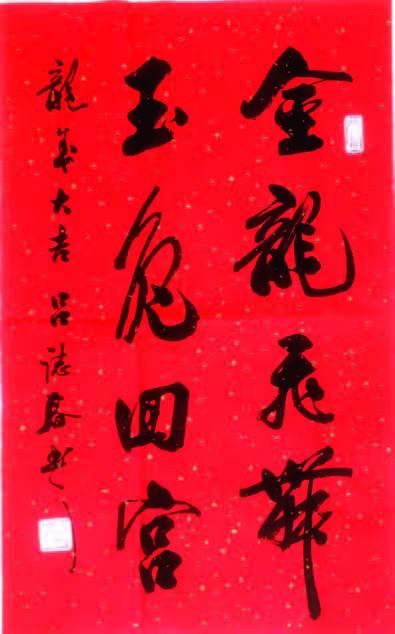 金龍飛舞
玉兔回宮
龍年大吉 呂誌春